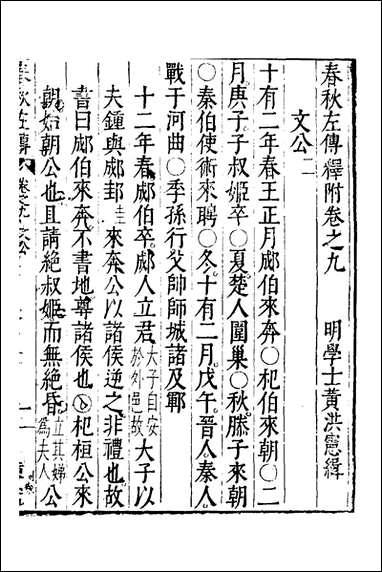 春秋左傳釋附卷之九 明學士黃洪憲緝
文公二
十有二年春王正月郕伯來奔○杞伯來朝○二
月庚子子叔姬卒○夏楚人圍巢○秋滕子來朝
○秦伯使術來聘○冬十有二月戊午晉人秦人
戰于河曲○季孫行父帥師城諸及鄆
十二年春郕伯卒郕人立君大子自安於外邑故大子以
夫鍾與郕邽來奔公以諸侯逆之非禮也故
書曰郕伯來奔不書地尊諸侯也○杞桓公來
朝始朝公也且請絕叔姬而無絕昏立其娣爲夫人公
春秋左傳 卷之九 文公